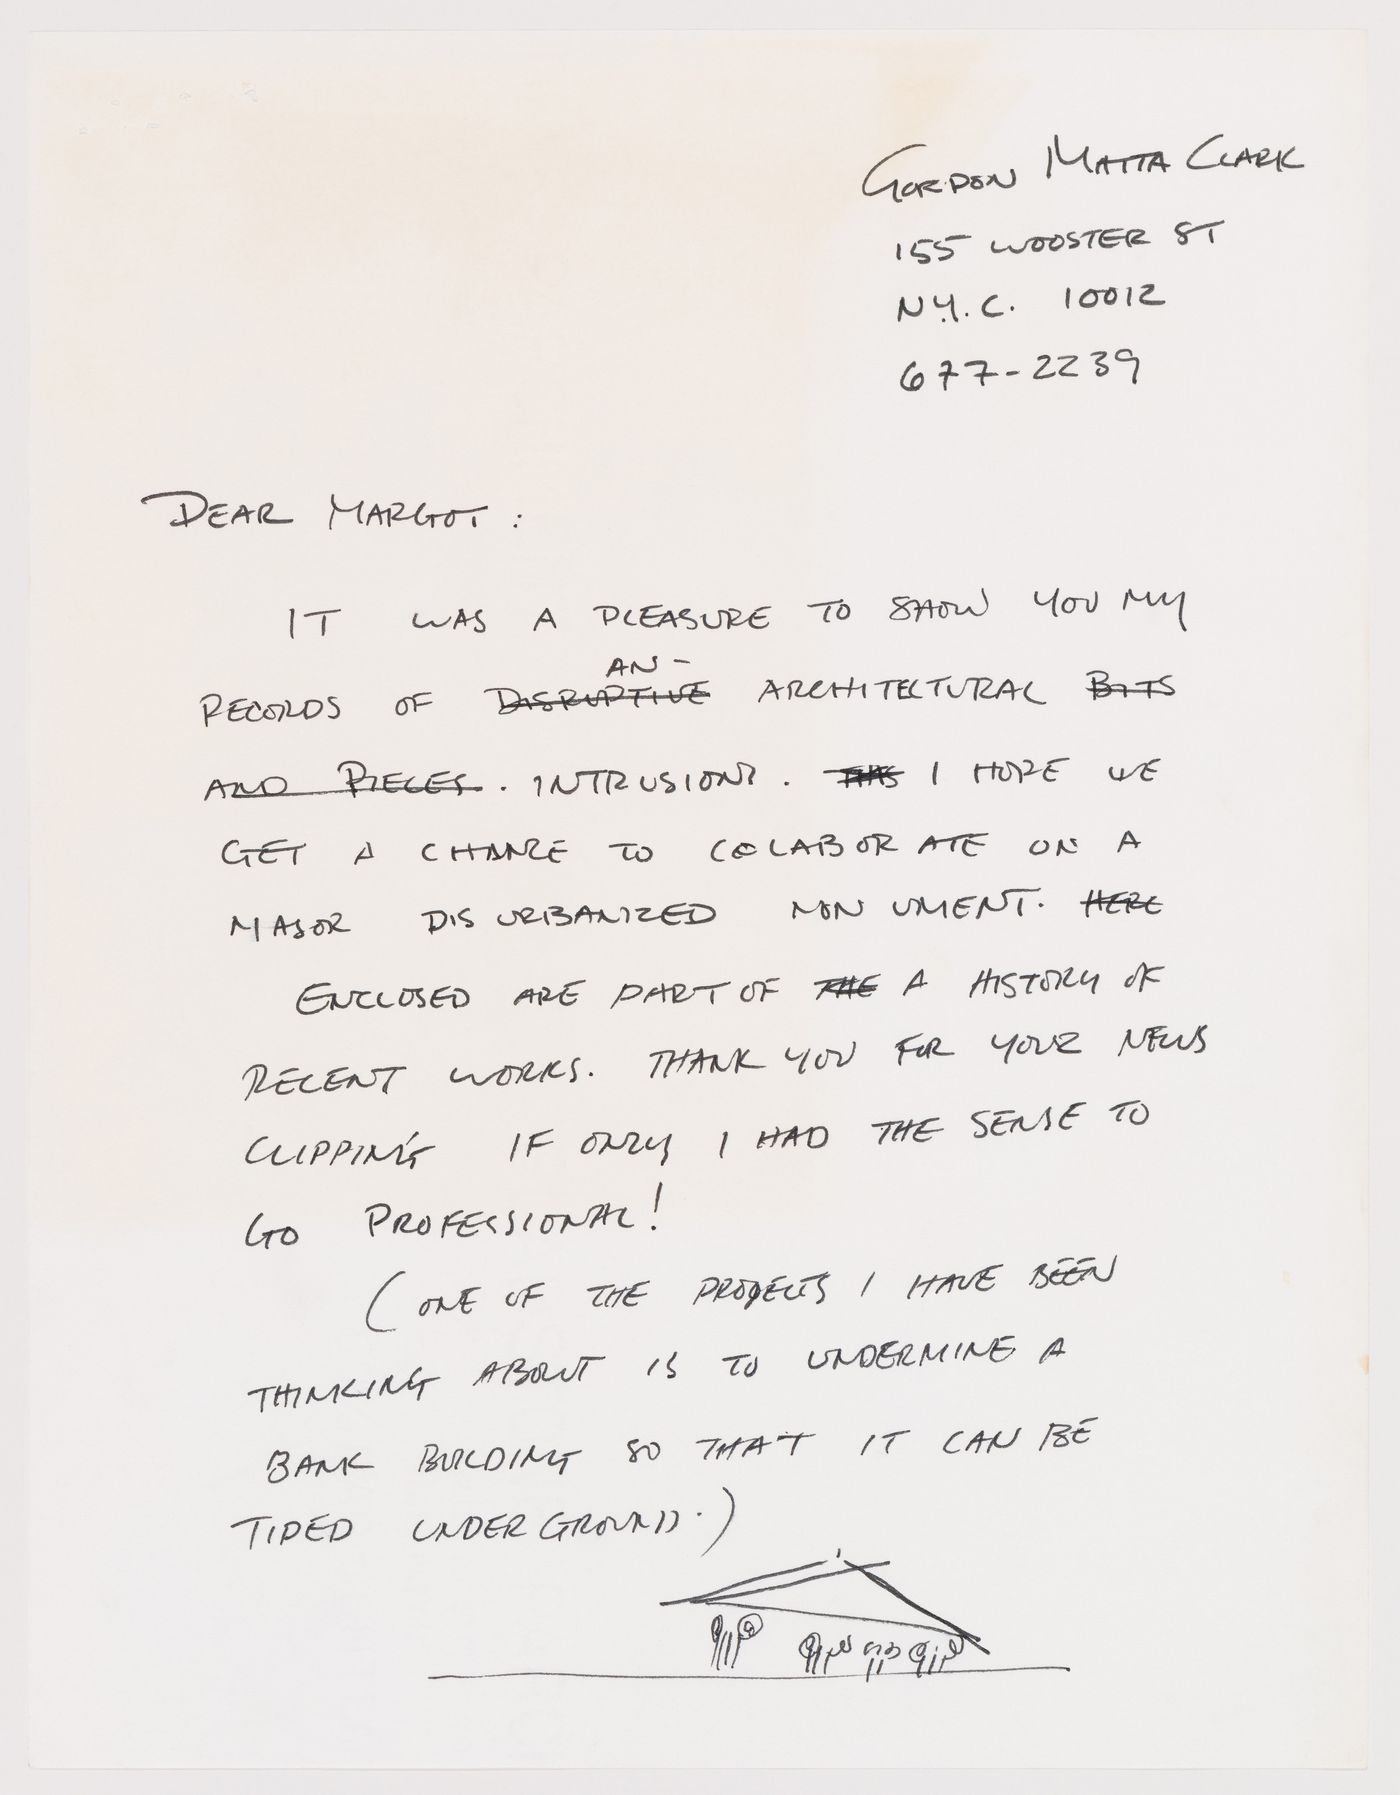 GORDON MATTA CLARK
155 WOOSTER ST
N.Y.C. 10012
677-2239
DEAR MARGOT:
IT WAS A PLEASURE TO SHOW YOU MY
AN-
RECORDS OF DISRUPTIVE ARCHITECTURAL BITS
AND PIECES. INTRUSIONS. THIS I HOPE WE
GET A CHANCE TO COLABORATE ON A
MAJOR DISURBANIZED MONUMENT. HERE
ENCLOSED ARE PART OF THE A HISTORY OF
RECENT WORKS. THANK YOU FOR YOUR NEWS
CLIPPING IF ONLY I HAD THE SENSE TO
GO PROFESSIONAL!
(ONE OF THE PROJECTS I HAVE BEEN
THINKING ABOUT IS TO UNDERMINE A
BANK BUILDING SO THAT IT CAN BE
TIPED UNDERGROUND.)